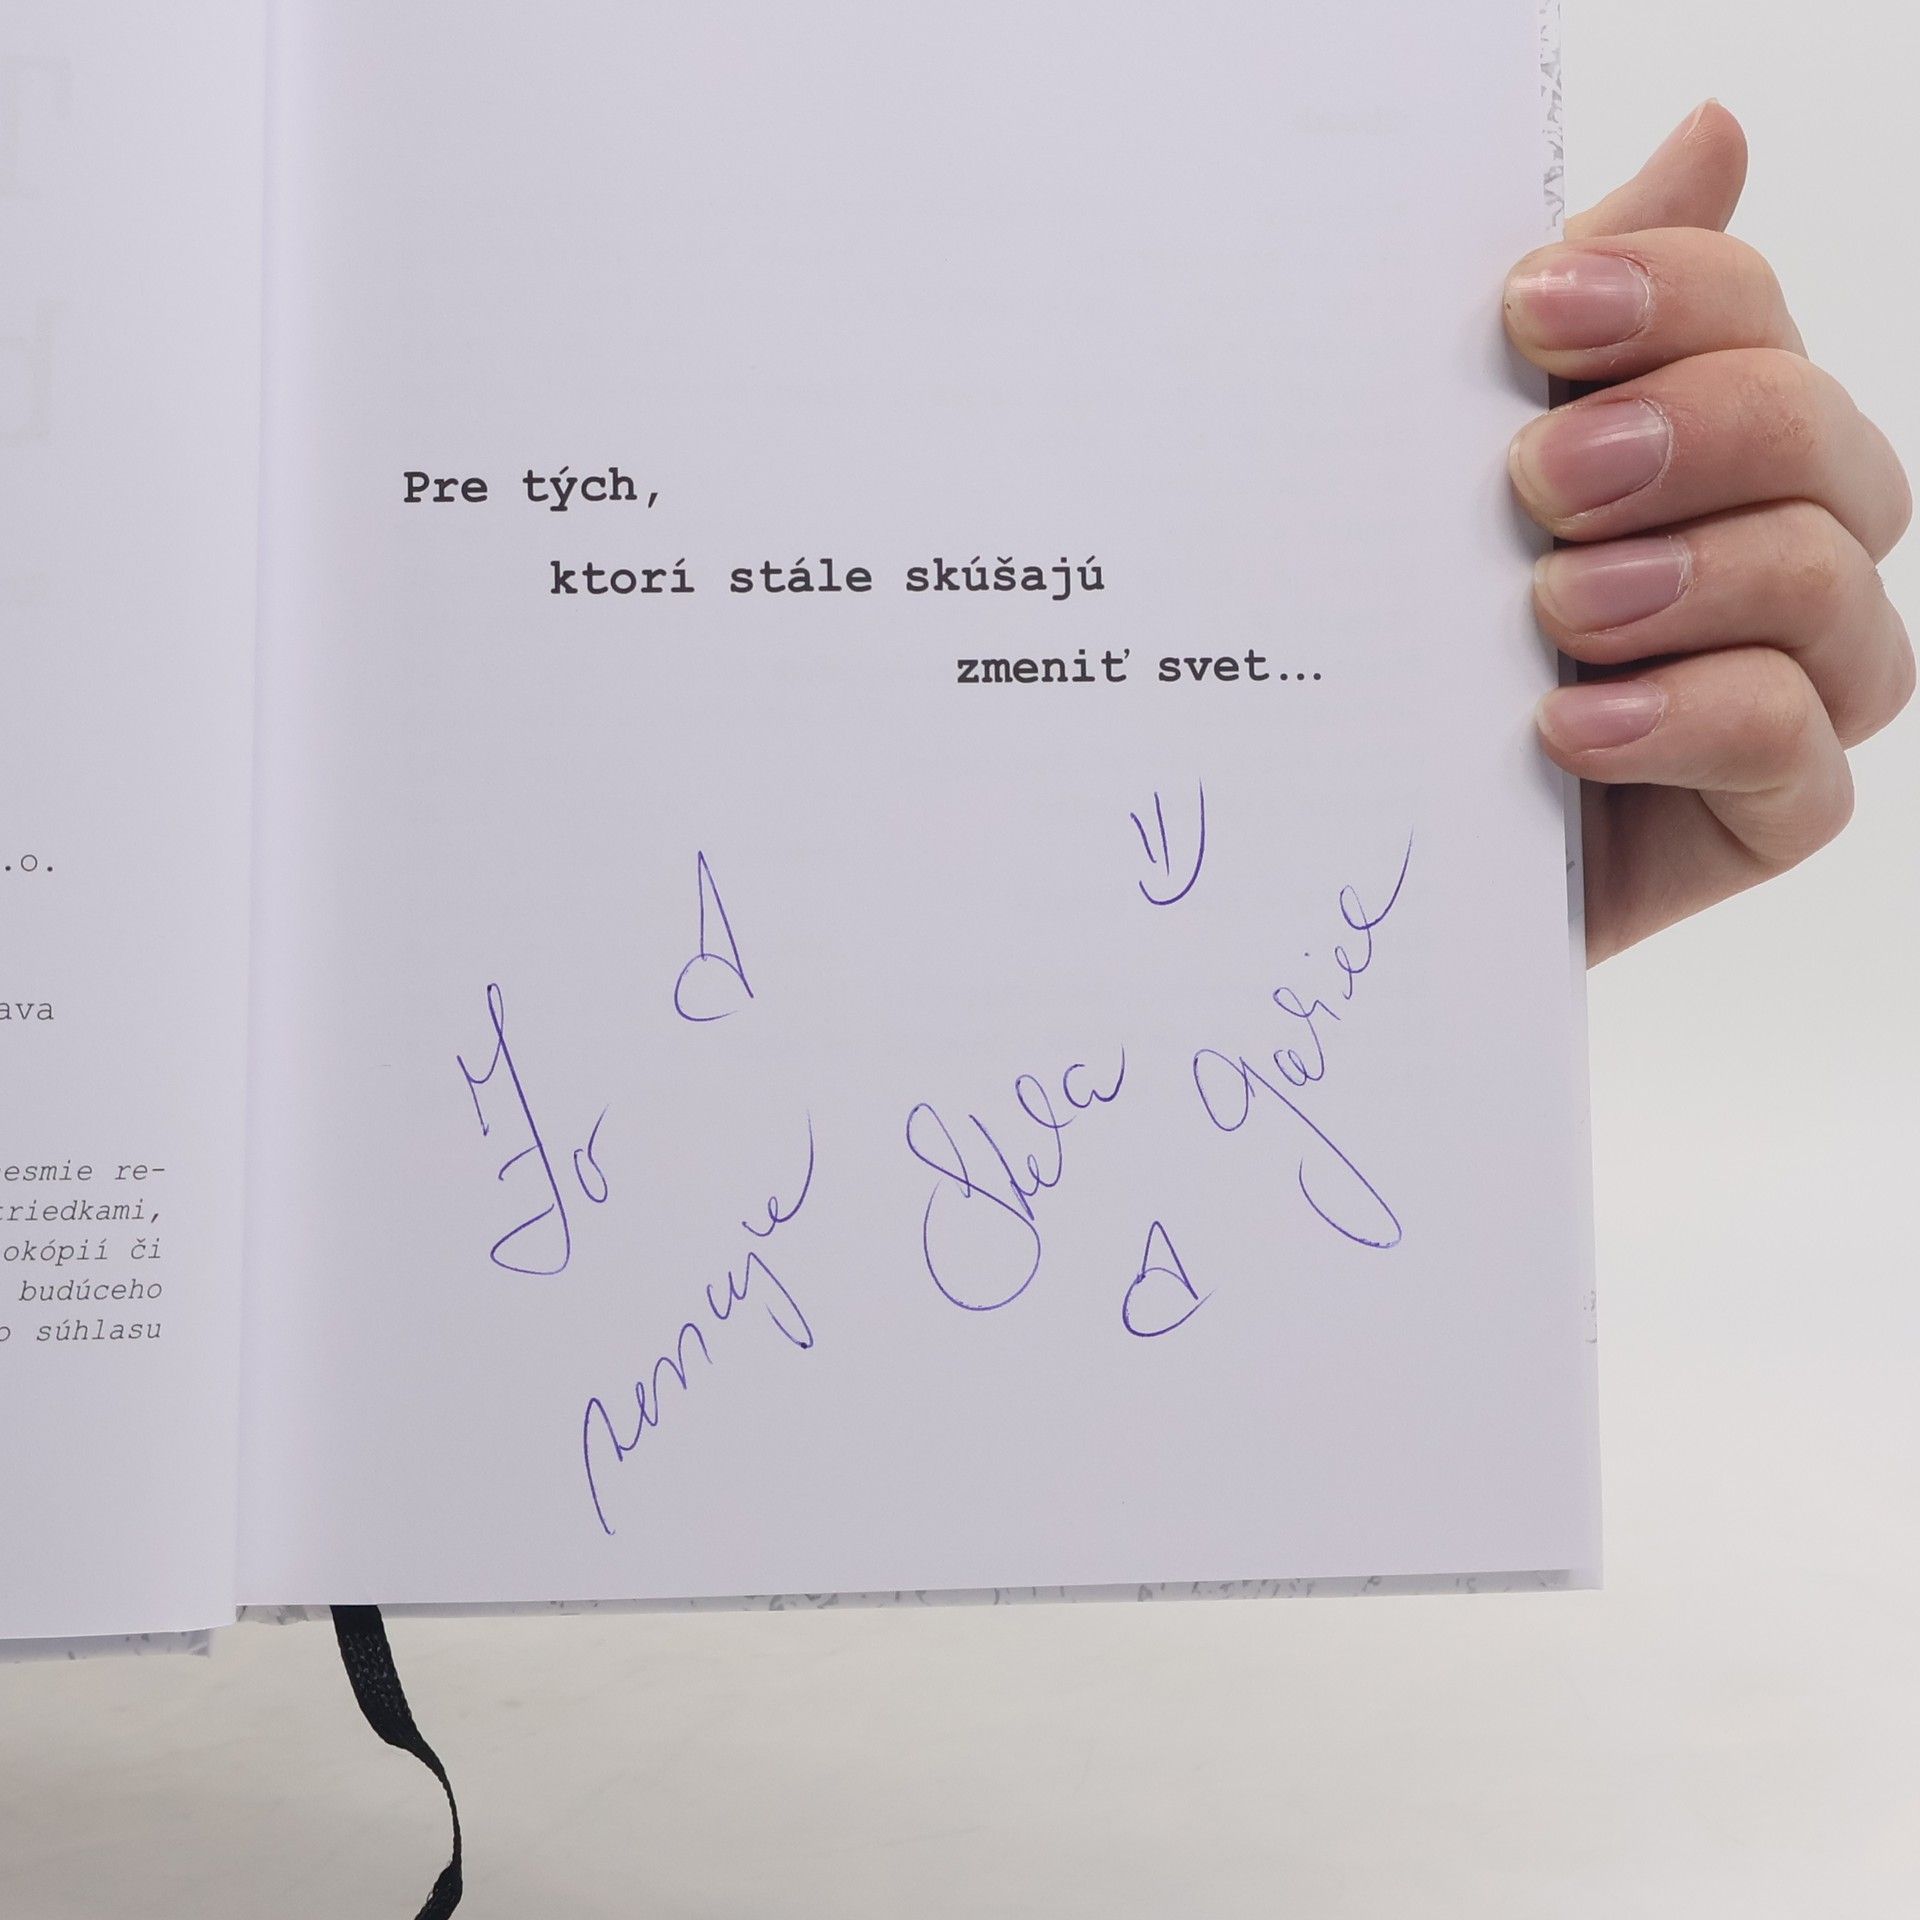 .o.
ava
esmie re-
triedkami,
okópií či
budúceho
o súhlasu
Pre tých,
ktorí stále skúšajú
zmeniť svet...
venuje
Stela